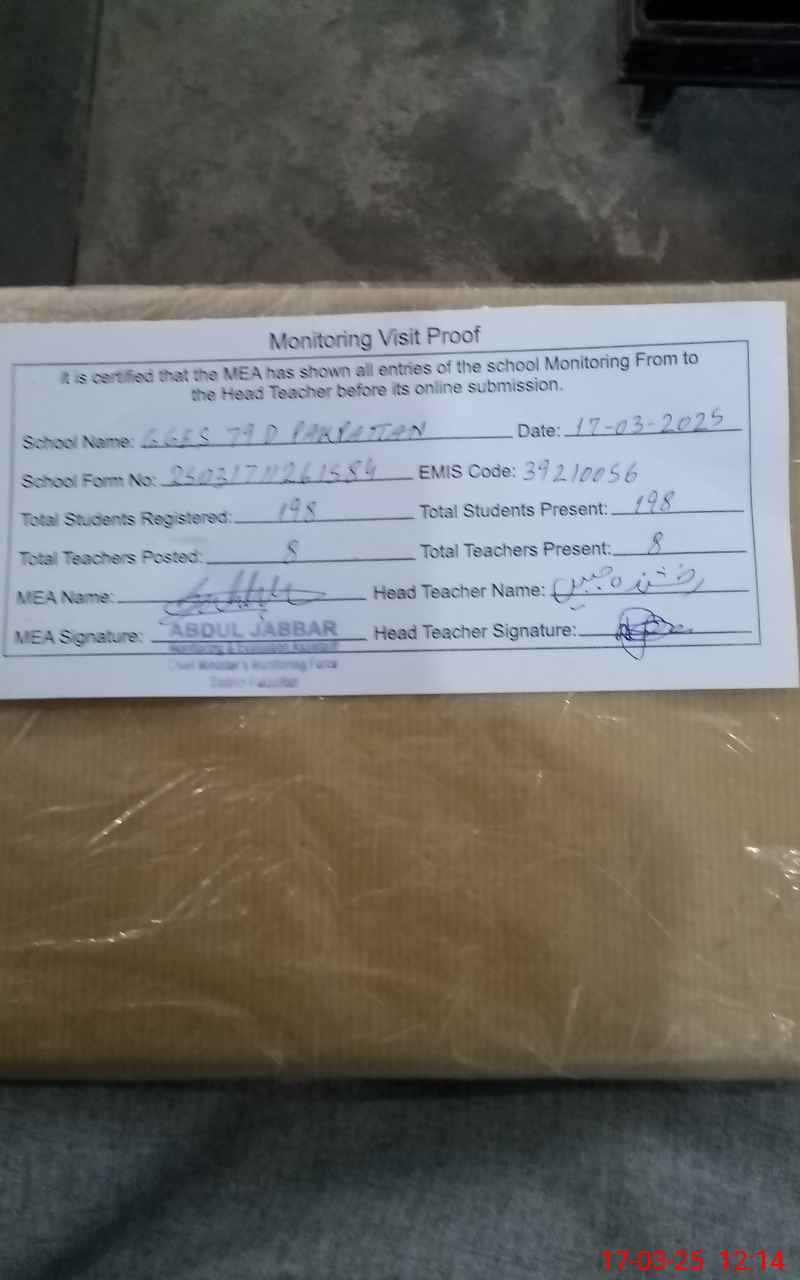 Monitoring Visit Proof
It is certified that the MEA has shown all entries of the school Monitoring From to
the Head Teacher before its online submission.
School Name: GGES 79 D PAKPATTAN Date: 17-03-2025
School Form No: EMIS Code: 39210056
Total Students Registered: 198 Total Students Present: 198
Total Teachers Posted: 8 Total Teachers Present: 8
MEA Name: Head Teacher Name:
MEA Signature: ABDUL JABBAR Head Teacher Signature:
Monitoring & Evaluation Assistant
Chief Minister's Monitoring Force
District Pakpattan
17-03-25 12:14